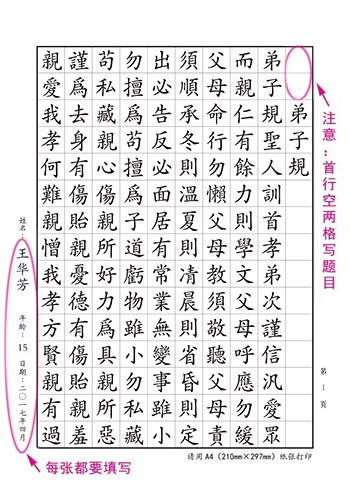 弟子規
弟子規聖人訓首孝弟次謹信汎愛眾
而親仁有餘力則學文父母呼應勿緩
父母命行勿懶父母教須敬聽父母責
須順承冬則溫夏則清晨則省昏則定
出必告反必面居有常業無變事雖小
勿擅爲苟擅爲子道虧物雖小勿私藏
苟私藏親心傷親所好力爲具親所惡
謹爲去身有傷貽親憂德有傷貽親羞
親愛我孝何難親憎我孝方賢親有過
姓名：王华芳 年齡：15 日期：二〇一七年四月
第 1 頁
请用 A4（210mm×297mm）纸张打印
注意：首行空两格写题目
每张都要填写